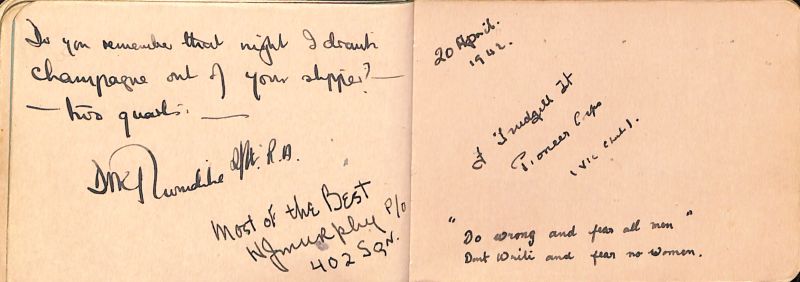 Do you remember that night I drank
champagne out of your slipper? —
— two quarts. —
2/Lt. R.A.
Most of the Best
WJMurphy P/O
402 SQN.
20 April.
1942.
J Trudgill Lt
Pioneer Corps
"Do wrong and fear all men"
Dont Write and fear no women.